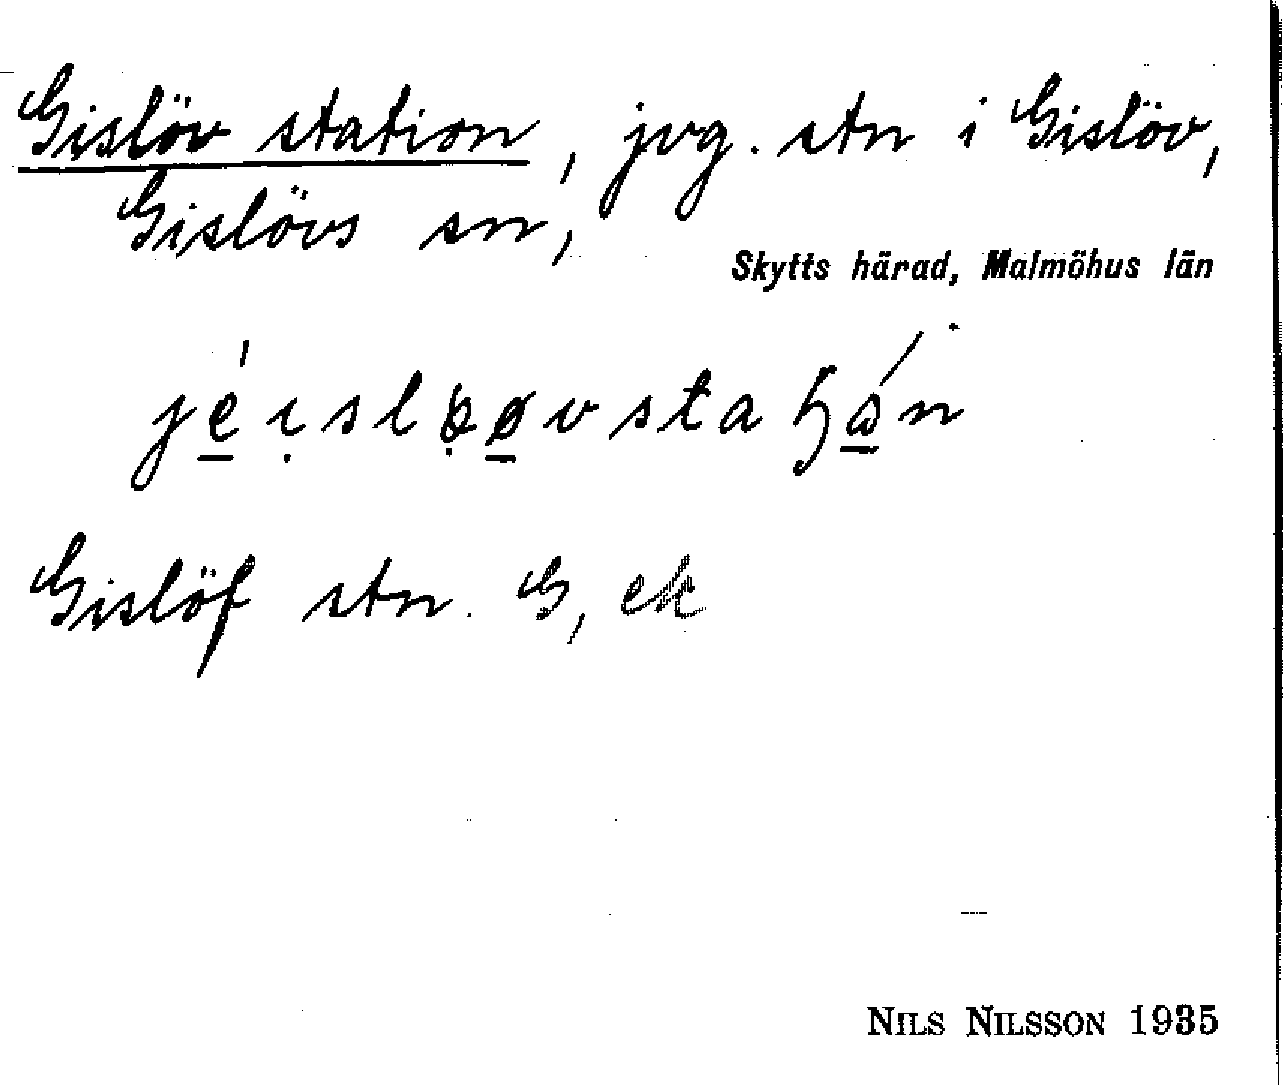 Gislöv station, jvg. stn i Gislöv,
Gislövs sn,
Skytts härad, Malmöhus län
Gislöf stn. G, ek
NILS NILSSON 1935